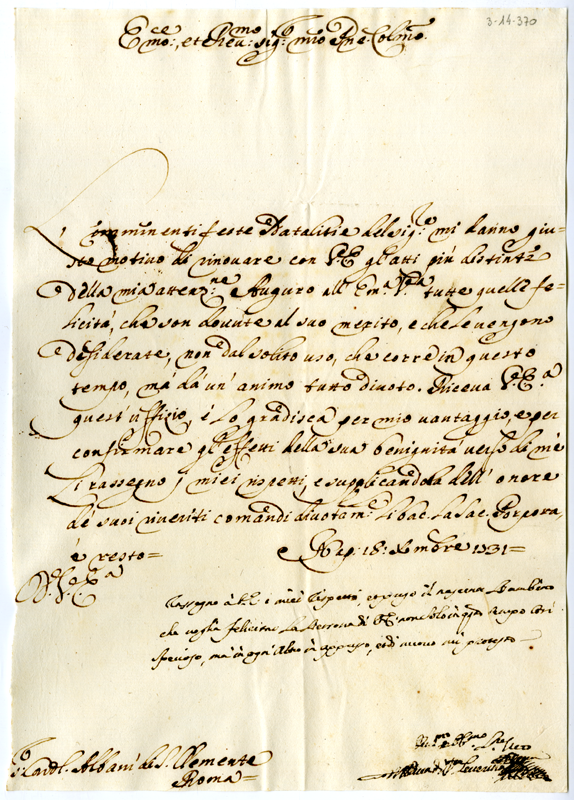 3-14-370
E.mo, et Reu.mo Sig.r mio P̃ne Colmo.
L'imminenti feste Natalitie del Sig.re mi danno giu=
sto motivo di rinouare con V.E. gl'atti più distinti
della mia attenz.ne. Auguro all'Em.a V.ra tutte quelle fe=
licità, che son douute al suo merito, e che le uengono
desiderate, non dal solito uso, che corre in questo
tempo, ma dà un'animo tutto diuoto. Riceua V.E.a
quest'uffizio, é lo gradisca per mio uantaggio, e per
confirmare gl'effetti della sua benignità uerso di me
Li rassegno j miei rispetti, e supplicandola dell'onore
de suoi riueriti comandi diuotam.te li bac. la Sac. Porpora,
é resto=
Nap. 18: Xmbre 1731=
D. V. E.a
Rassegno à V.E. i miei rispetti, e il nascente Bambino
che voglia felicitar la Persona di V.E. non solo in q.sto tempo così
specioso, ma in ogn'altro, e di nuouo mi protesto
S.r Card.l Albani di S. Clemente
Roma=